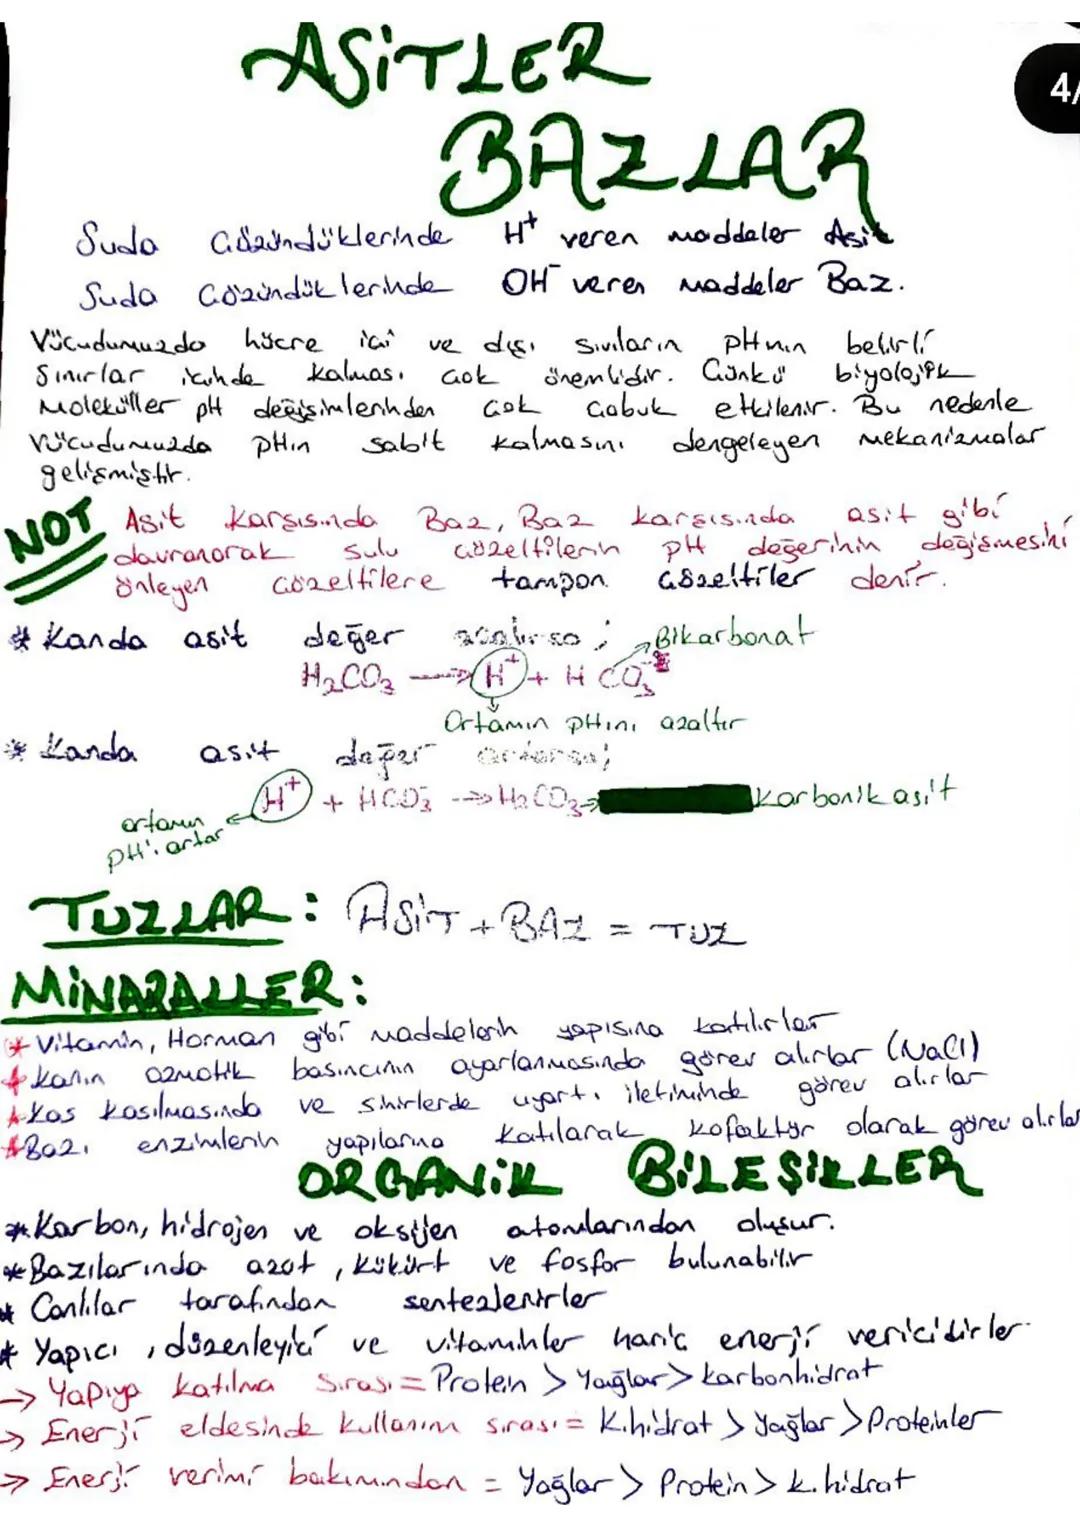 ASİTLER
4/
BAZLAR
Suda Çözündüklerinde H⁺ veren maddeler Asit
Suda Çözündüklerinde OH⁻ veren maddeler Baz.
Vücudumuzda hücre içi ve dışı sıvıların pHnın belirli
Sınırlar içinde kalması çok önemlidir. Çünkü biyolojik
Moleküller pH değişimlerinden çok çabuk etkilenir. Bu nedenle
Vücudumuzda pHın sabit kalmasını dengeleyen mekanizmalar
gelişmiştir.
NOT Asit karşısında Baz, Baz karşısında asit gibi
davranarak sulu çözeltilerin pH değerinin değişmesini
önleyen çözeltilere tampon çözeltiler denir.
* Kanda asit değer azalırsa; Bikarbonat
H₂CO₃ → H⁺ + HCO₃⁻
Ortamın pHını azaltır
* Kanda asit değer artarsa;
H⁺ + HCO₃⁻ → H₂CO₃ → Karbonik asit
ortamın
pH'ı artar
TUZLAR: ASİT + BAZ = TUZ
MİNARALLER:
* Vitamin, Horman gibi maddelerin yapısına katılırlar
* Kanın ozmotik basıncının ayarlanmasında görev alırlar (NaCl)
* Kas kasılmasında ve sinirlerde uyartı iletiminde görev alırlar
* Bazı enzimlerin yapılarına katılarak kofaktör olarak görev alırlar
ORGANİK BİLEŞİKLER
* Karbon, hidrojen ve oksijen atomlarından oluşur.
* Bazılarında azot, kükürt ve fosfor bulunabilir
* Canlılar tarafından sentezlenirler
* Yapıcı, düzenleyici ve vitaminler hariç enerji vericidirler.
→ Yapıya katılma sırası = Protein > Yağlar > karbonhidrat
→ Enerji eldesinde kullanım sırası = K.hidrat > Yağlar > Proteinler
→ Enerji verimi bakımından = Yağlar > Protein > k.hidrat